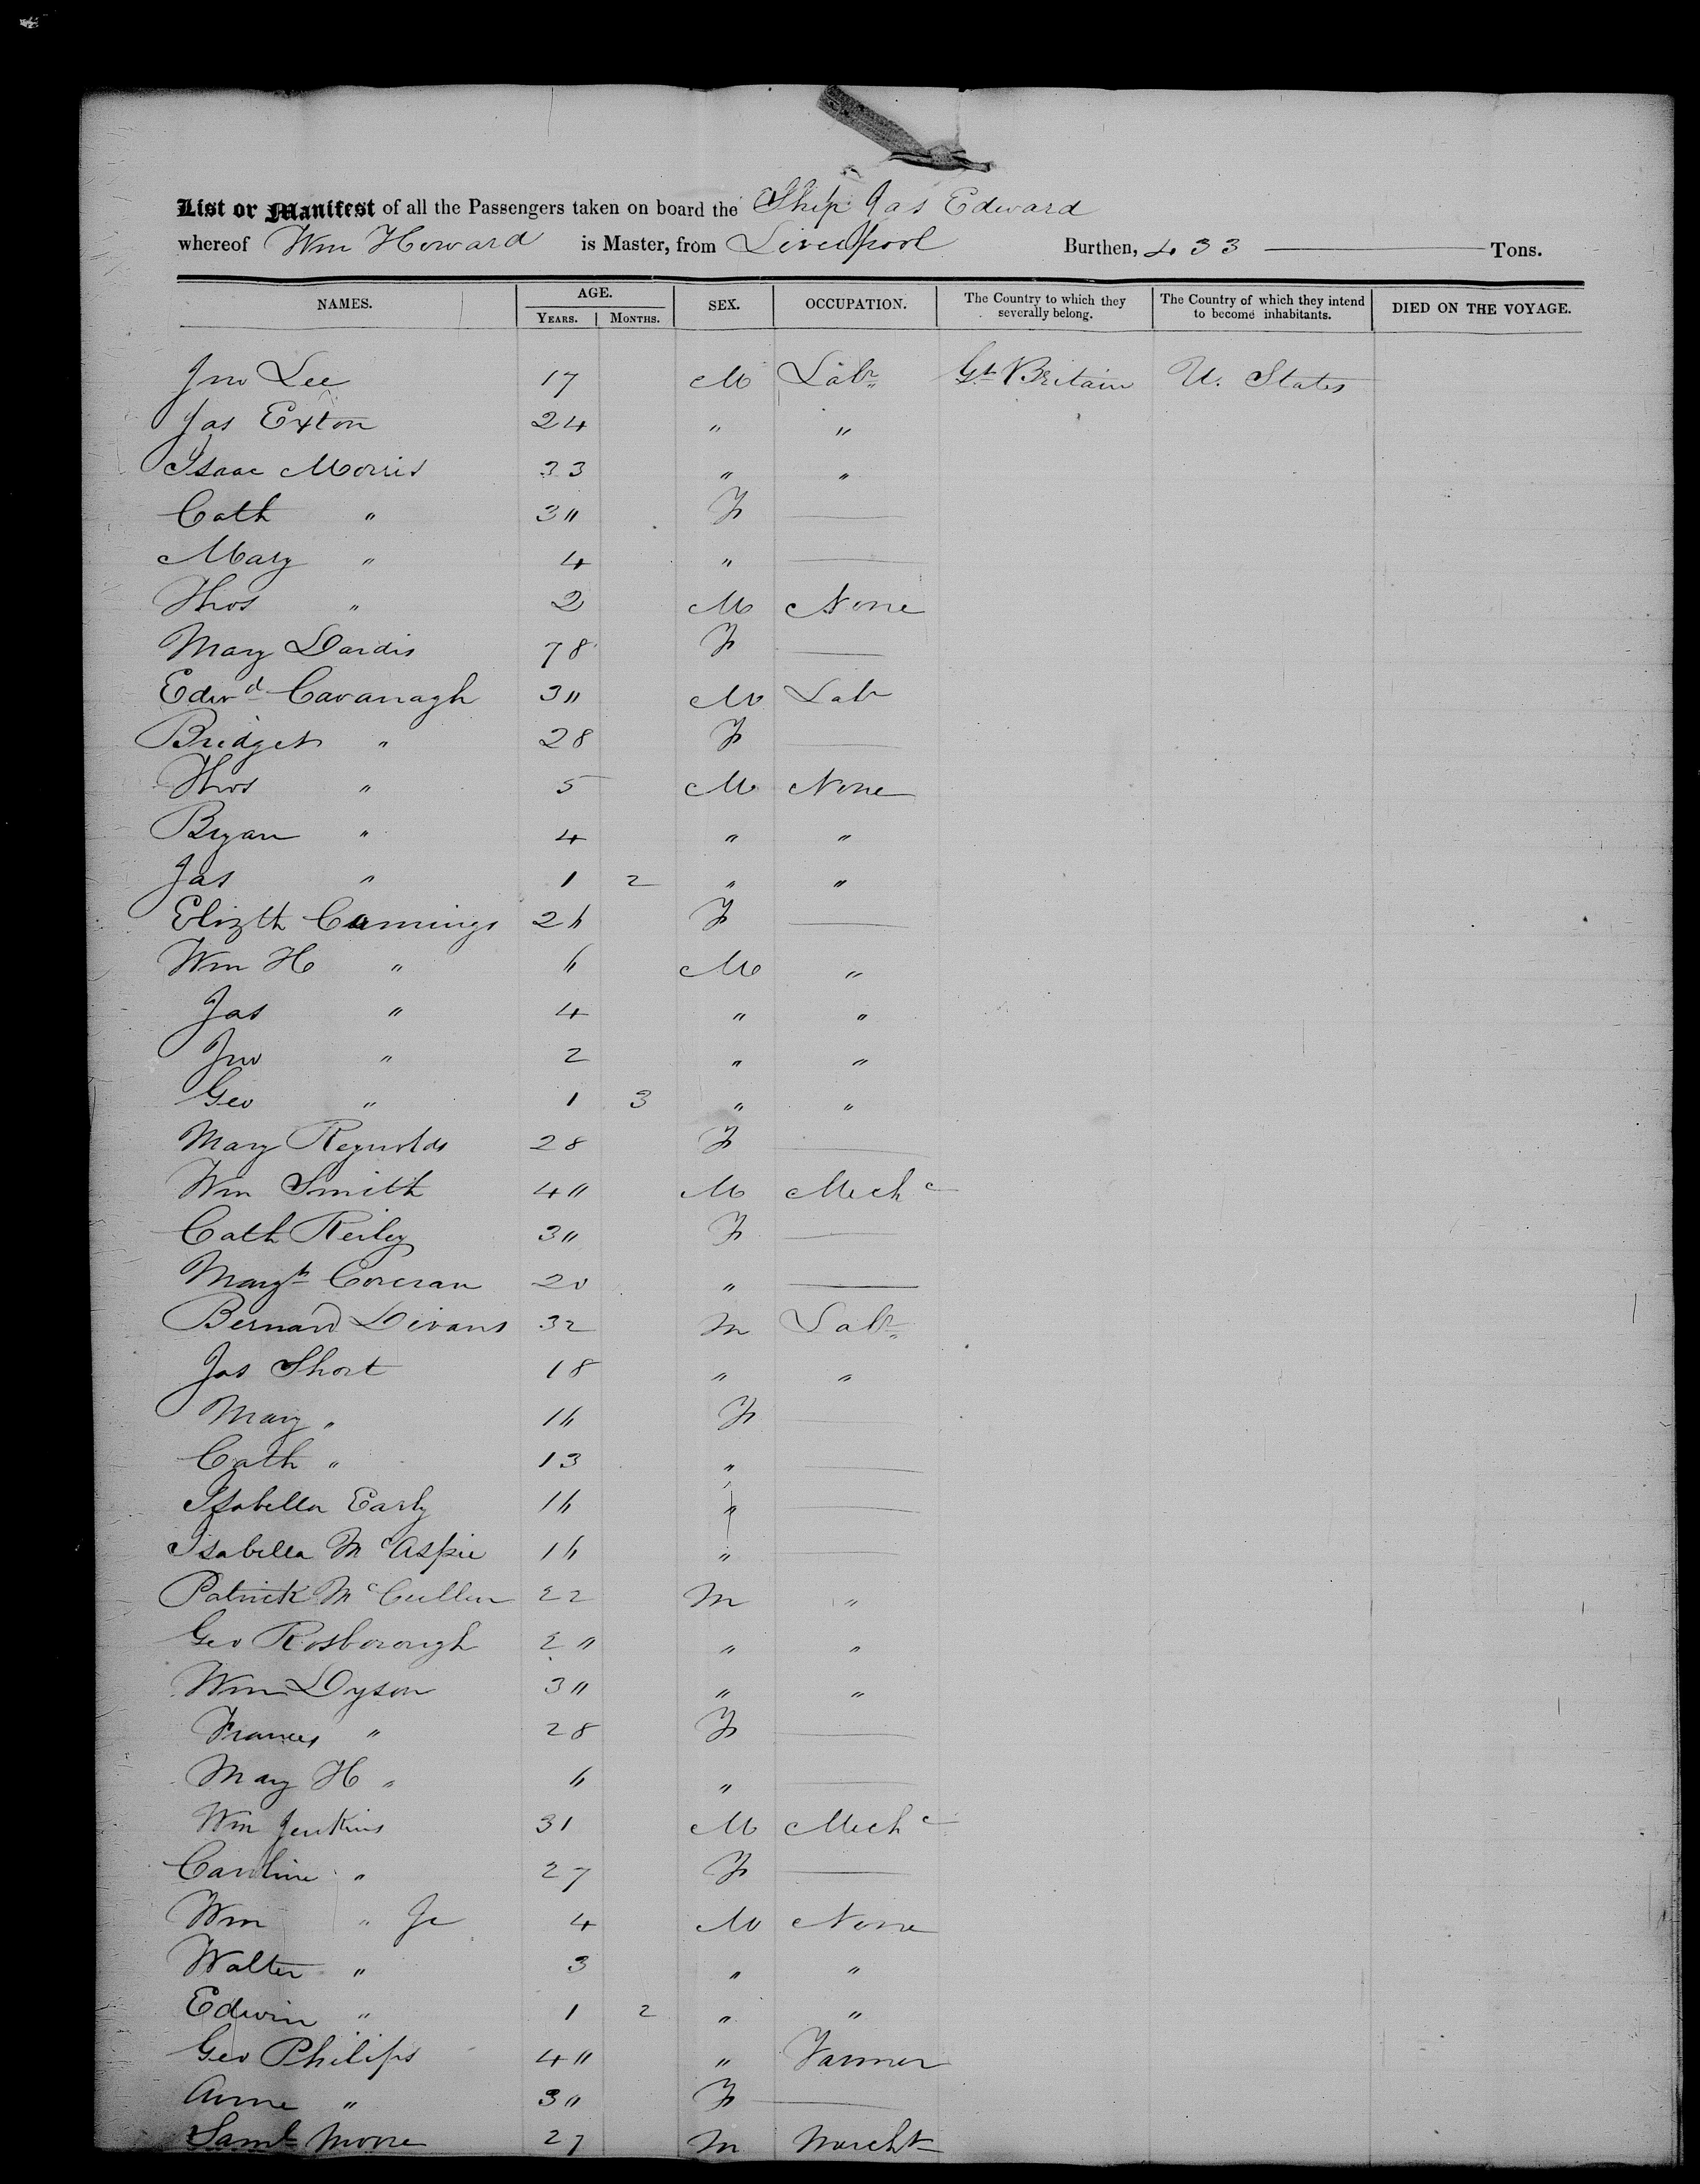 List or Manifest of all the Passengers taken on board the Ship Jas Edward
whereof Wm Howard is Master, from Liverpool Burthen, 433 Tons.
NAMES. AGE. YEARS. MONTHS. SEX. OCCUPATION. The Country to which they severally belong. The Country of which they intend to become inhabitants. DIED ON THE VOYAGE.
Jno Lee 17 M Labr Gt Britain U. States
Jas Exton 24 " "
Isaac Morris 33 " "
Cath " 3" F —
Mary " 4 " —
Thos " 2 M None
Mary Dardis 78 F —
Edwd Cavanagh 3" M Lab
Bridget " 28 F —
Thos " 5 M None
Bryan " 4 " "
Jas " 1 2 " "
Elizth Cummings 26 F —
Wm H " 6 M "
Jas " 4 " "
Jno " 2 " "
Geo " 1 3 " "
Mary Reynolds 28 F —
Wm Smith 4" M Mechc
Cath Reiley 3" F —
Margt Corcran 20 " —
Bernard Divans 32 M Labr
Jas Short 18 " "
Mary " 16 F —
Cath " 13 " —
Isabella Early 16 " —
Isabella McAspie 16 " —
Patrick McCullen 22 M "
Geo Rosborough 2" " "
Wm Dyson 3" " "
Frances " 28 F —
Mary H " 6 " —
Wm Jenkins 31 M Mechc
Caroline " 27 F —
Wm " Jr 4 M None
Walter " 3 " "
Edwin " 1 2 " "
Geo Philips 4" " Farmer
Anne " 3" F —
Saml Moore 27 M Marcht